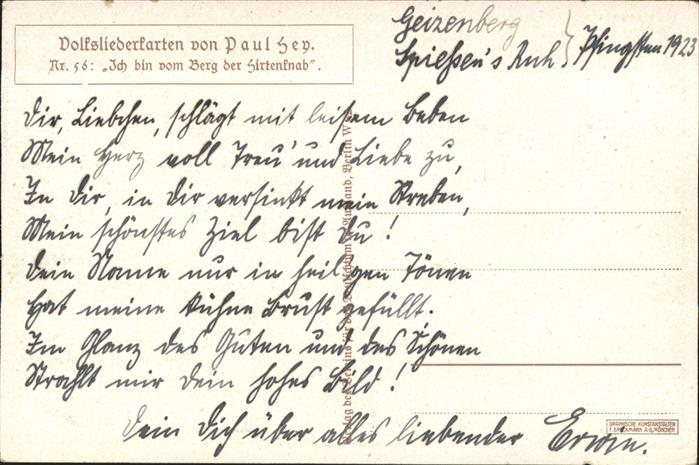 Volksliederkarten von Paul Hey.
Nr. 56: „Ich bin vom Berg der Hirtenknab".
Geizenberg
Spiessen's Ruh } Pfingsten 1923
Dir, Liebchen, schlägt mit leisem Beben
Mein Herz voll Treu' und Liebe zu,
In Dir, in Dir versinkt mein Streben,
Mein schönstes Ziel bist du!
Dein Name nur in heil'gen Tönen
Hat meine kühne Brust gefüllt.
Im Glanz des Guten und des Schönen
Strahlt mir dein hohes Bild!
Dein Dich über alles liebender Erwin.
Verlag des Vereins für das Deutschtum im Ausland, Berlin W
GRAPHISCHE KUNSTANSTALTEN
F. BRUCKMANN A.G. MÜNCHEN